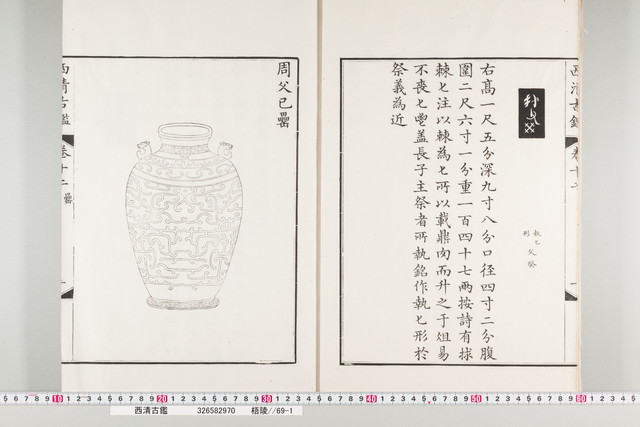 執匕
形
父癸
右高一尺五分深九寸八分口徑四寸二分腹
圍二尺六寸一分重一百四十七兩按詩有捄
棘匕注以棘為匕所以載鼎肉而升之于俎易
不喪匕鬯蓋長子主祭者所執銘作執匕形於
祭義為近
周父己罍
西清古鑑
卷十二 罍
10 20 30 40 50 60
西清古鑑 326582970 梧陵//69-1